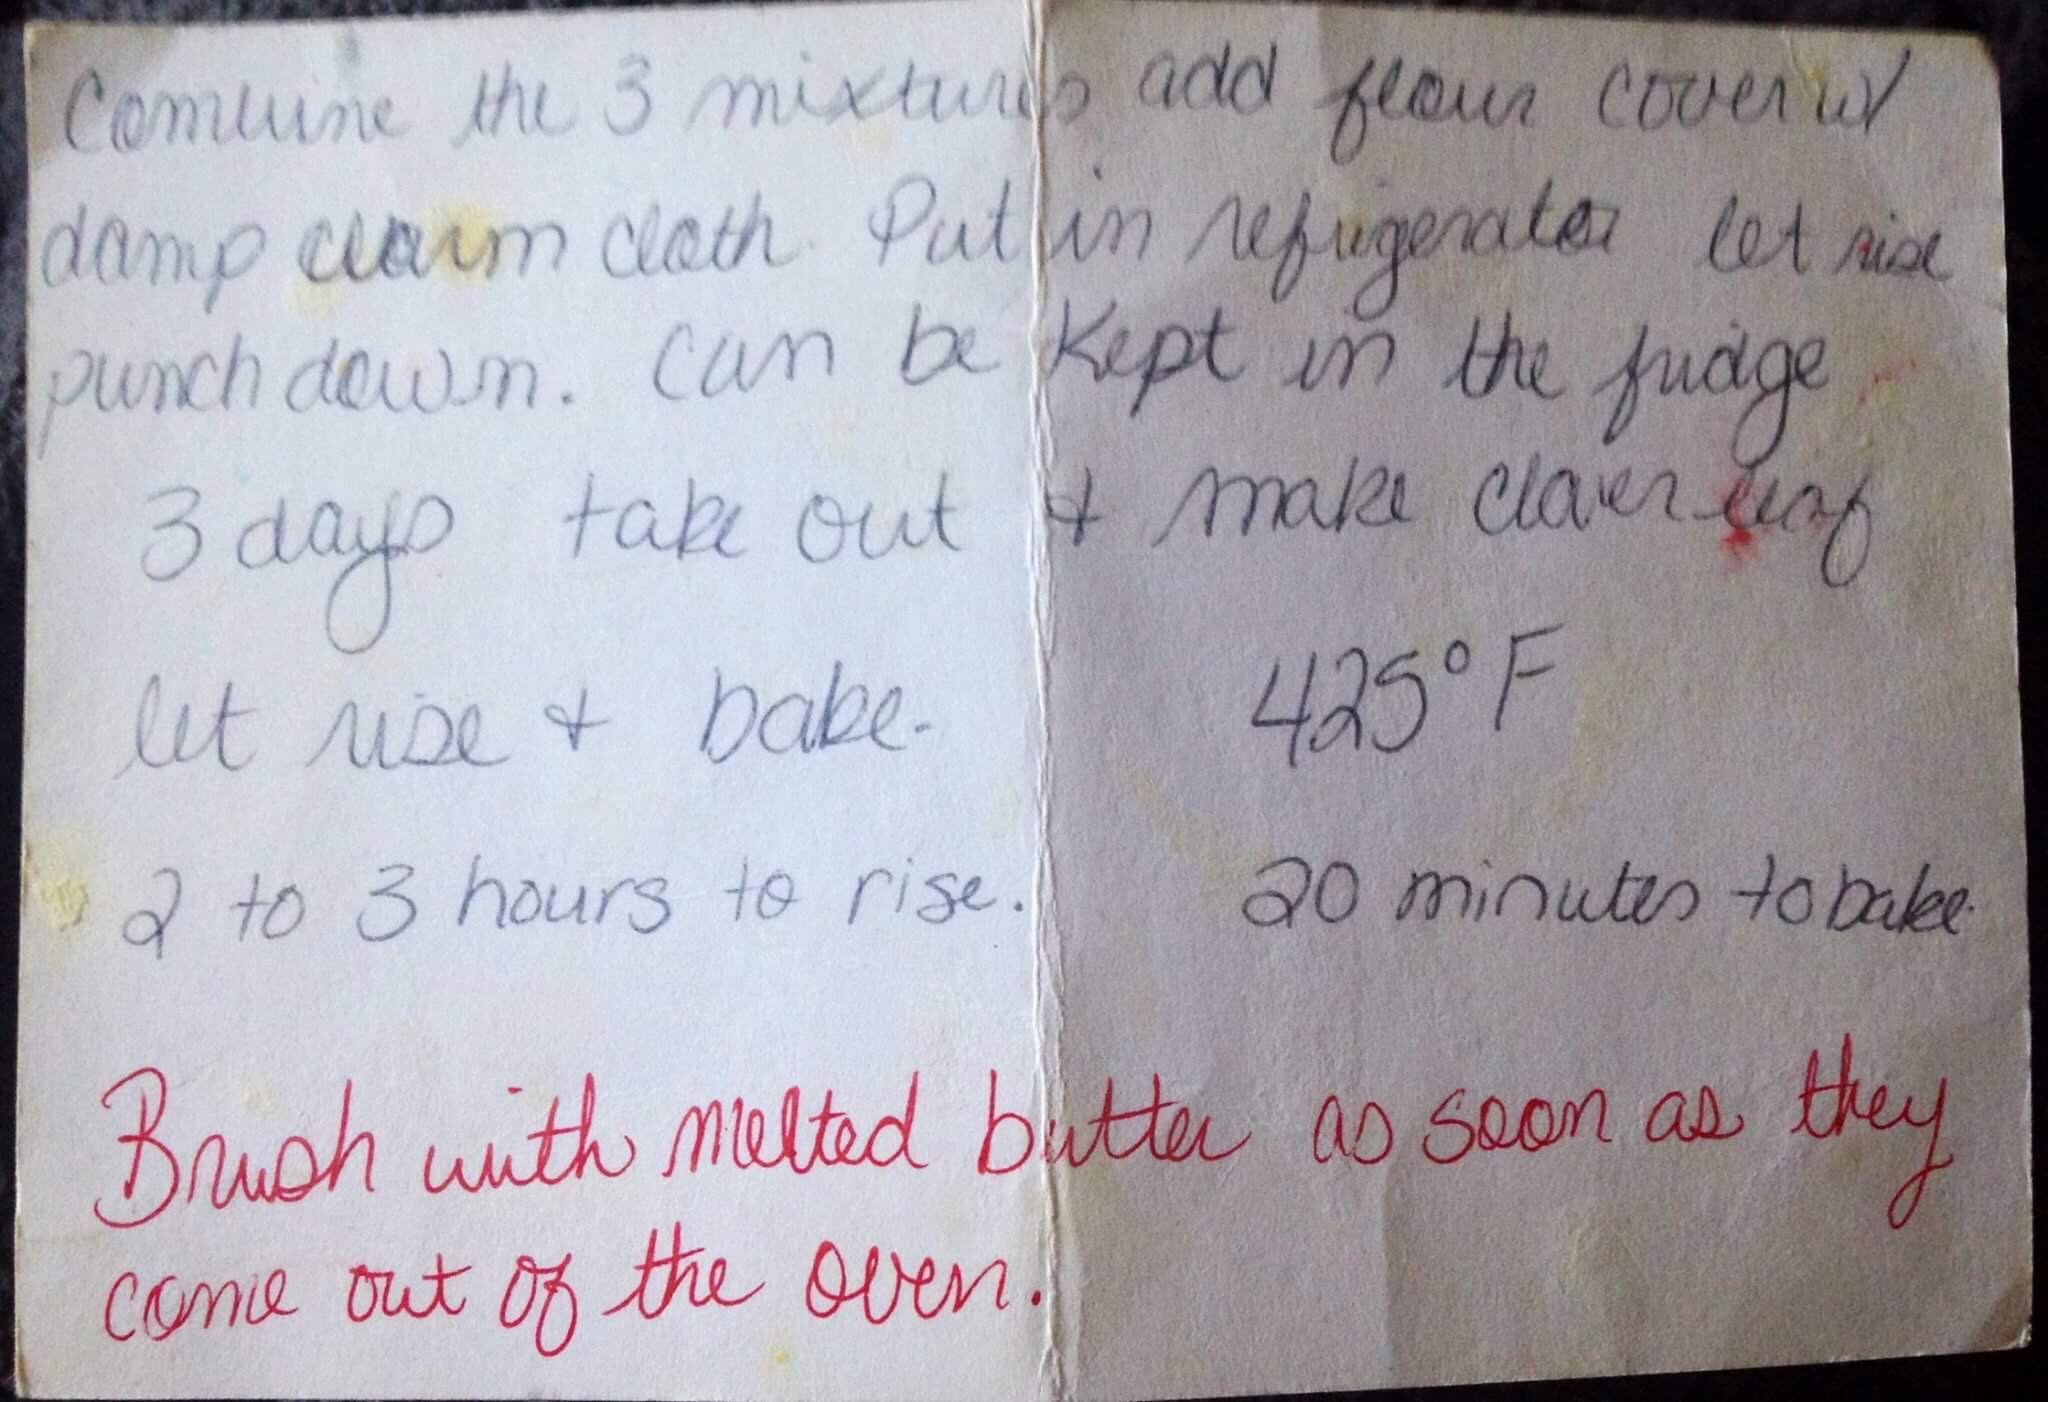 Combine the 3 mixtures add flour cover w/
damp warm cloth. Put in refrigerator let rise
punch down. Can be kept in the fridge
3 days take out & make clover leaf
let rise & bake. 425° F
2 to 3 hours to rise. 20 minutes to bake.
Brush with melted butter as soon as they
come out of the oven.